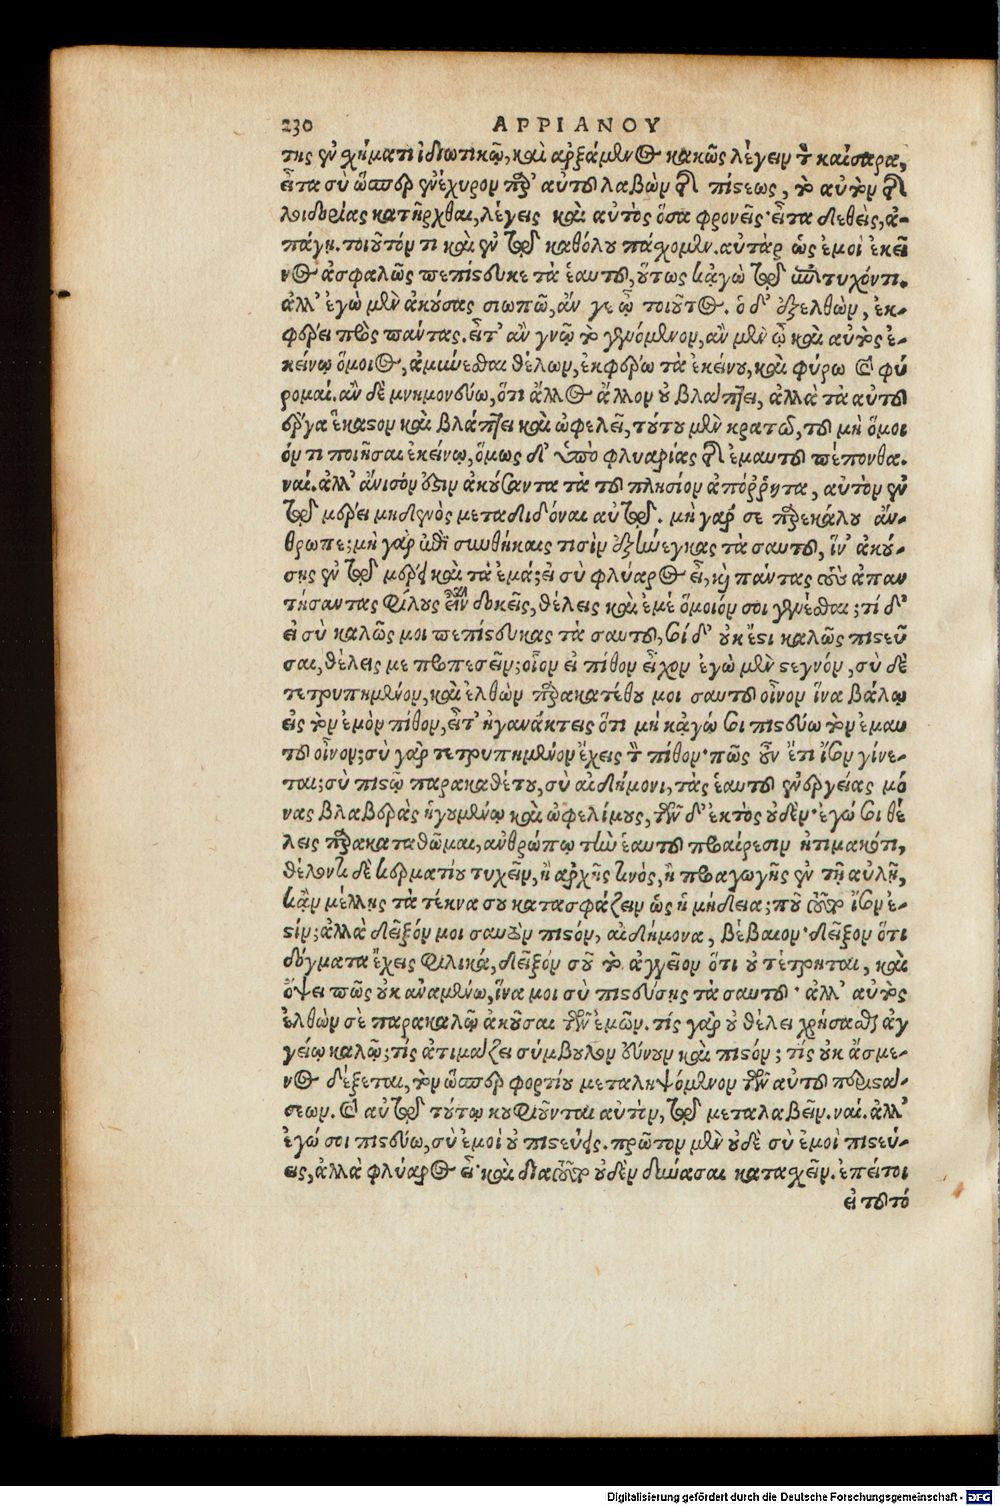 230 ΑΡΡΙΑΝΟΥ
της ἐν χήματι ἰδιωτικῷ, καὶ ἀρξάμεν⊙ κακῶς λέγειν τ καίσαρα,
εἶτα σὺ ὥσπερ ἐνέχυρον παρ' αὐτοῦ λαβὼν τῆς πίστεως, τὸ αὐτὸν τῆς
λοιδορίας κατῆρχθαι, λέγεις καὶ αὐτὸς ὅσα φρονεῖς· εἶτα δεθεὶς, ἀ-
πάγῃ. τοιοῦτόν τι καὶ ἐν τῷ καθόλου πάσχομεν. αὐτὰρ ὡς ἐμοὶ ἐκεῖ
νος ἀσφαλῶς πεπίστευκε τὰ ἑαυτοῦ, οὕτως κἀγὼ τῷ ἐπιτυχόντι.
ἀλλ' ἐγὼ μὲν ἀκούσας σιωπῶ, ἄν γε ὦ τοιοῦτος. ὁ δ' ἐξελθὼν, ἐκ-
φέρει πρὸς πάντας. εἶτ' ἂν γνῶ τὸ γενόμενον, ἂν μὲν ὦ καὶ αὐτὸς ἐ-
κείνῳ ὅμοιος, ἀμύνεσθαι θέλων, ἐκφέρω τὰ ἐκείνου, καὶ φύρω καὶ φύ
ρομαι. ἂν δὲ μνημονεύω, ὅτι ἄλλος ἄλλον οὐ βλάπτει, ἀλλὰ τὰ αὐτοῦ
ἔργα ἕκαστον καὶ βλάπτει καὶ ὠφελεῖ, τούτου μὲν κρατῶ, τοῦ μὴ ὅμοι
όν τι ποιῆσαι ἐκείνῳ, ὅμως δ' ὑπὸ φλυαρίας τῆς ἐμαυτοῦ πέπονθα.
ναί. ἀλλ' ἄνισόν ἐστιν ἀκούσαντα τὰ τοῦ πλησίον ἀπόῤῥητα, αὐτὸν ἐν
τῷ μέρει μηδενὸς μεταδιδόναι αὐτῷ. μὴ γάρ σε παρεκάλουν ἄν-
θρωπε; μὴ γὰρ ἐπὶ συνθήκαις τισὶν ἐξήνεγκας τὰ σαυτοῦ, ἵν' ἀκού-
σῃς ἐν τῷ μέρει καὶ τὰ ἐμά; εἰ σὺ φλύαρος εἶ, καὶ πάντας τοὺς ἀπαν
τήσαντας φίλους εἶναι δοκεῖς, θέλεις καὶ ἐμὲ ὅμοιόν σοι γενέσθαι; τί δ'
εἰ σὺ καλῶς μοι πεπίστευκας τὰ σαυτοῦ, σοὶ δ' οὐκ ἔστι καλῶς πιστεῦ
σαι, θέλεις με προπεσεῖν; οἷον εἰ πίθον εἶχον ἐγὼ μὲν στεγνόν, σὺ δὲ
τετρυπημένον, καὶ ἐλθὼν παρακατέθου μοι σαυτοῦ οἶνον ἵνα βάλω
εἰς τὸν ἐμὸν πίθον, εἶτ' ἠγανάκτεις ὅτι μὴ κἀγώ σοι πιστεύω τὸν ἐμαυ
τοῦ οἶνον; σὺ γὰρ τετρυπημένον ἔχεις τ πίθον· πῶς οὖν ἔτι ἴσον γίνε-
ται; σὺ πιστῷ παρακατέθου, σὺ αἰδήμονι, τὰς ἑαυτοῦ ἐνεργείας μό
νας βλαβερὰς ἡγουμένῳ καὶ ὠφελίμους, τῶν δ' ἐκτὸς οὐδέν· ἐγώ σοι θέ
λεις παρακαταθῶμαι, ἀνθρώπῳ τὴν ἑαυτοῦ προαίρεσιν ἠτιμακότι,
θέλοντι δὲ κερματίου τυχεῖν, ἢ ἀρχῆς τινὸς, ἢ προαγωγῆς ἐν τῇ αὐλῇ,
κἂν μέλλῃς τὰ τέκνα σου κατασφάζειν ὡς ἡ μήδεια; ποῦ τοῦτο ἴσον ἐ-
στίν; ἀλλὰ δεῖξόν μοι σαυτὸν πιστόν, αἰδήμονα, βέβαιον· δεῖξον ὅτι
δόγματα ἔχεις φιλικά, δεῖξόν σου τὸ ἀγγεῖον ὅτι οὐ τέτρηται, καὶ
ὄψει πῶς οὐκ ἀναμένω, ἵνα μοι σὺ πιστεύσῃς τὰ σαυτοῦ· ἀλλ' αὐτὸς
ἐλθὼν σὲ παρακαλῶ ἀκοῦσαι τῶν ἐμῶν. τίς γὰρ οὐ θέλει χρήσασθαι ἀγ
γείῳ καλῷ; τίς ἀτιμάζει σύμβουλον εὔνουν καὶ πιστόν; τίς οὐκ ἄσμε-
νος δέξεται, τὸν ὥσπερ φορτίου μεταληψόμενον τῶν αὐτοῦ περιστά-
σεων. καὶ αὐτῷ τούτῳ κουφιοῦνται αὐτὴν, τῷ μεταλαβεῖν. ναί. ἀλλ'
ἐγώ σοι πιστεύω, σὺ ἐμοὶ οὐ πιστεύεις. πρῶτον μὲν οὐδὲ σὺ ἐμοὶ πιστεύ-
εις, ἀλλὰ φλύαρος εἶ· καὶ διὰ τοῦτο οὐδὲν δύνασαι κατασχεῖν. ἐπείτοι
εἰ τοῦτό
Digitalisierung gefördert durch die Deutsche Forschungsgemeinschaft - DFG